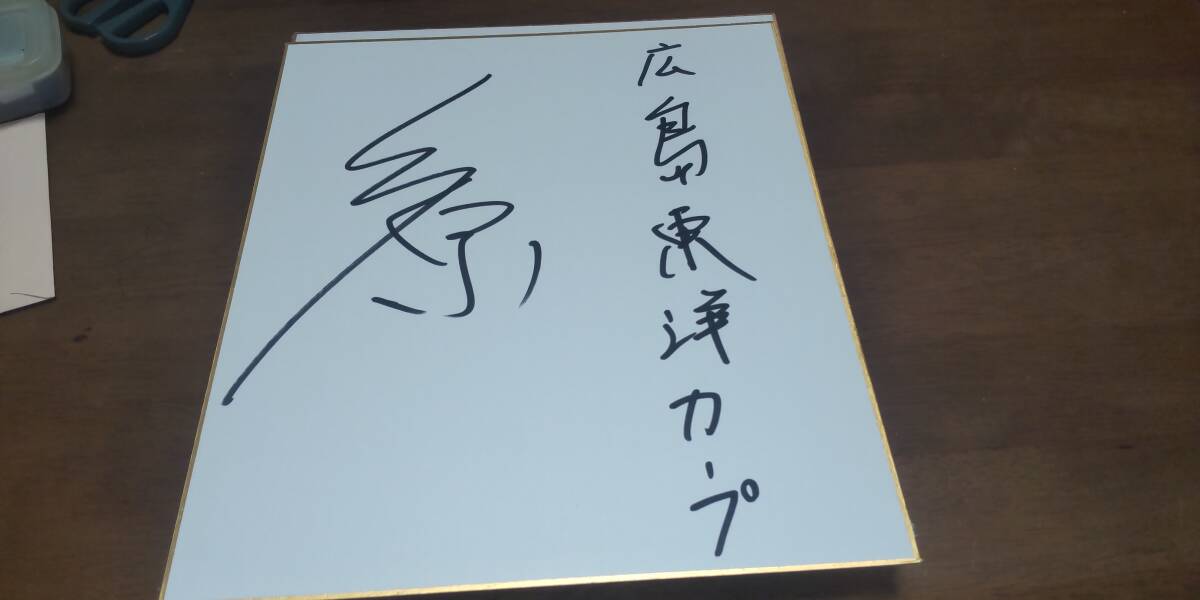 広島東洋カープ